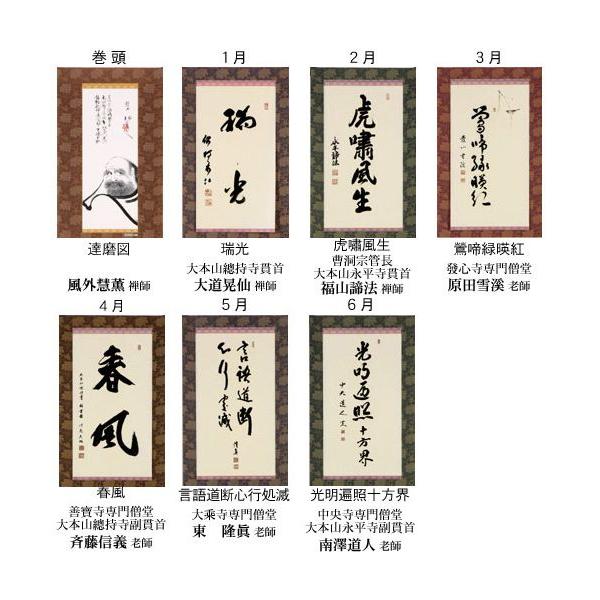 巻頭
1月
2月
3月
瑞光
虎嘯風生
鶯啼緑暎紅
達磨図
風外慧薫 禅師
瑞光
大本山總持寺貫首
大道晃仙 禅師
虎嘯風生
曹洞宗管長
大本山永平寺貫首
福山諦法 禅師
鶯啼緑暎紅
發心寺専門僧堂
原田雪溪 老師
4月
5月
6月
春風
言語道断
心行処滅
光明遍照十方界
春風
善寳寺専門僧堂
大本山總持寺副貫首
斉藤信義 老師
言語道断心行処滅
大乘寺専門僧堂
東 隆眞 老師
光明遍照十方界
中央寺専門僧堂
大本山永平寺副貫首
南澤道人 老師